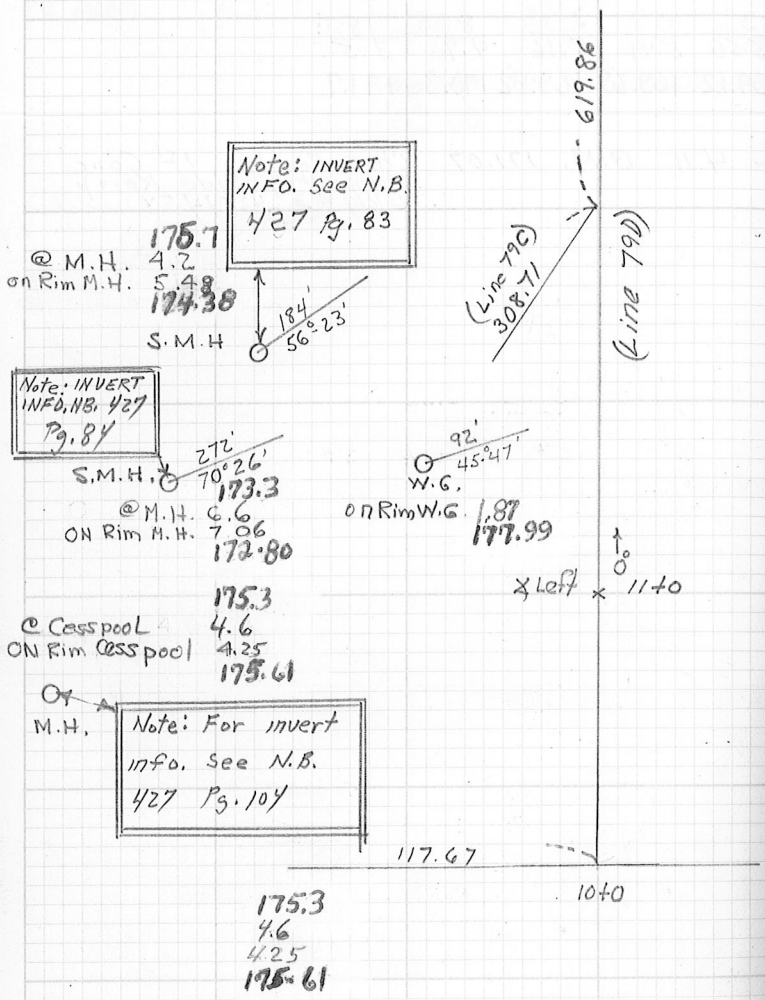 619.86
Note: INVERT
INFO. See N.B.
427 Pg. 83
175.7
@ M.H. 4.2
on Rim M.H. 5.48
174.38
S.M.H
184'
56°-23'
(Line 79C)
308.71
(Line 79D)
Note: INVERT
INFO. NB. 427
Pg. 84
S.M.H.
272'
70°26'
173.3
@ M.H. 6.6
ON Rim M.H. 7.06
172.80
92'
45°47'
W.G.
on Rim W.G. 1.87
177.99
0°
∡ Left x 11+0
175.3
@ Cesspool 4.6
ON Rim Cesspool 4.25
175.61
M.H.
Note: For invert
info. See N.B.
427 Pg. 104
117.67
10+0
175.3
4.6
4.25
175.61